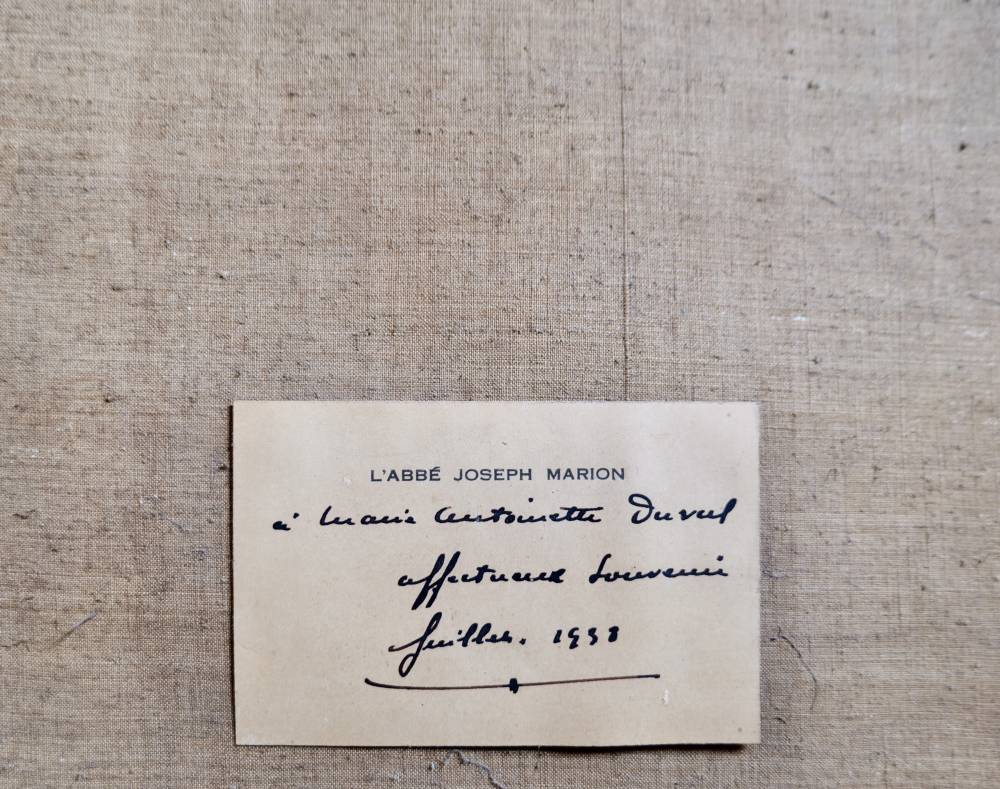 L'ABBÉ JOSEPH MARION
à Marie Antoinette Duval
affectueux Souvenir
Juillet. 1938